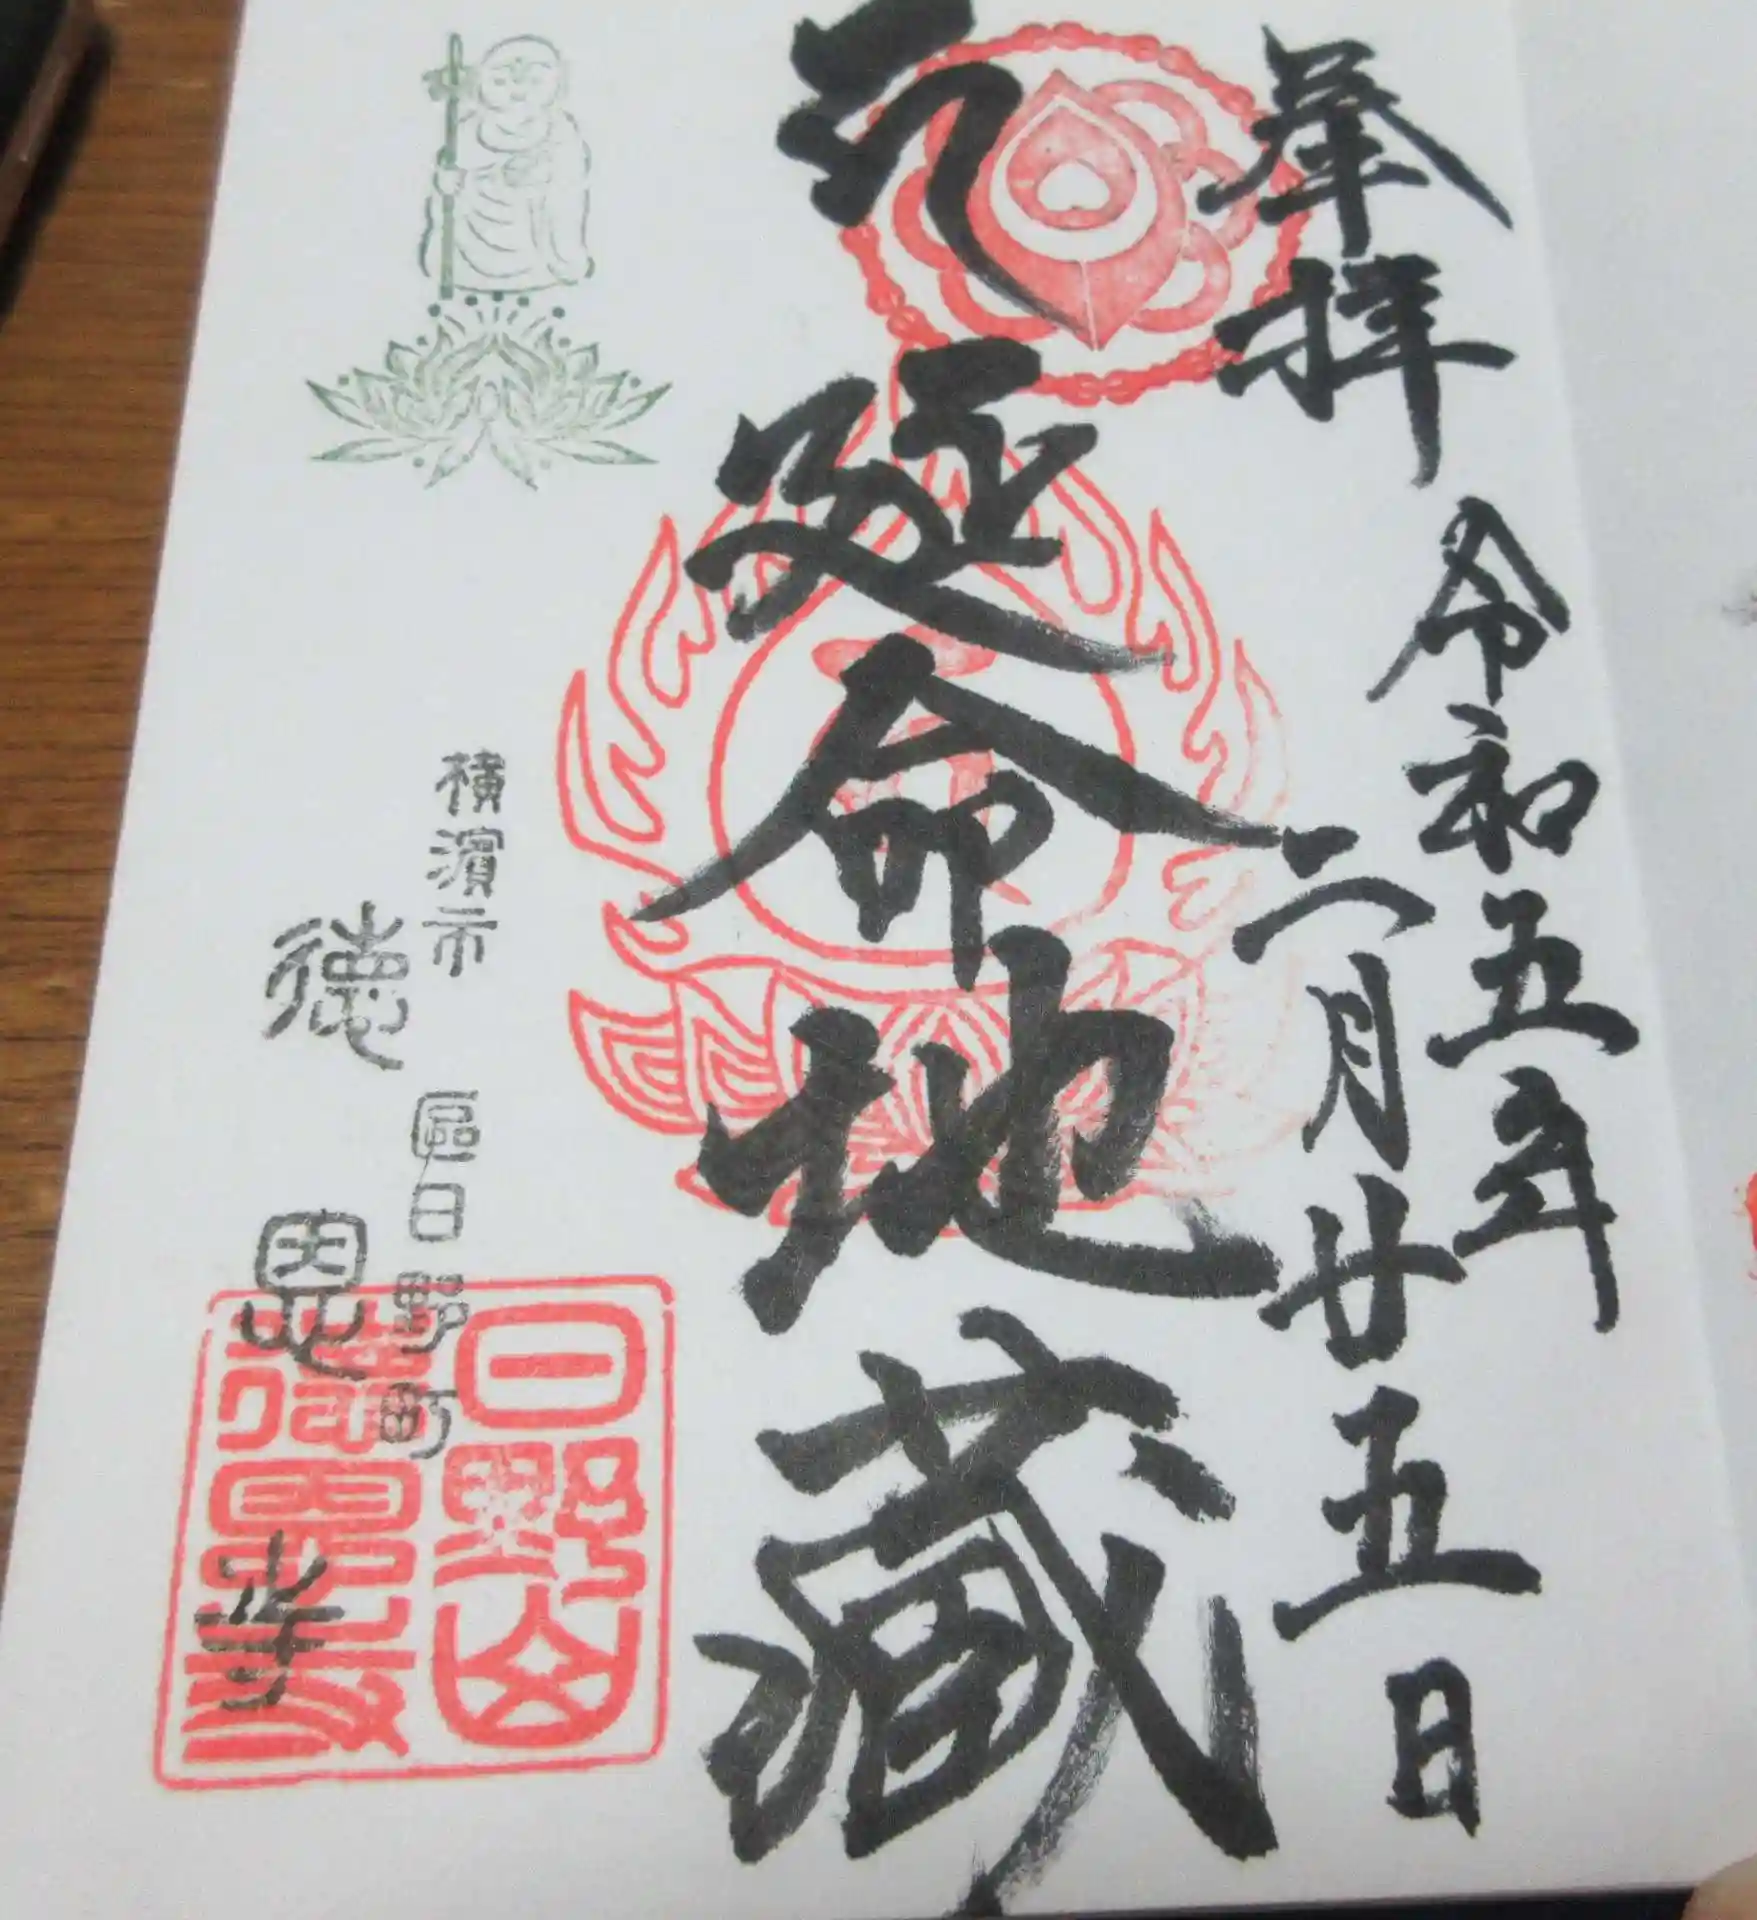 奉拝
令和五年
二月廿五日
延命地蔵
横濱市
區日野町
徳恩寺
日野山
徳恩寺